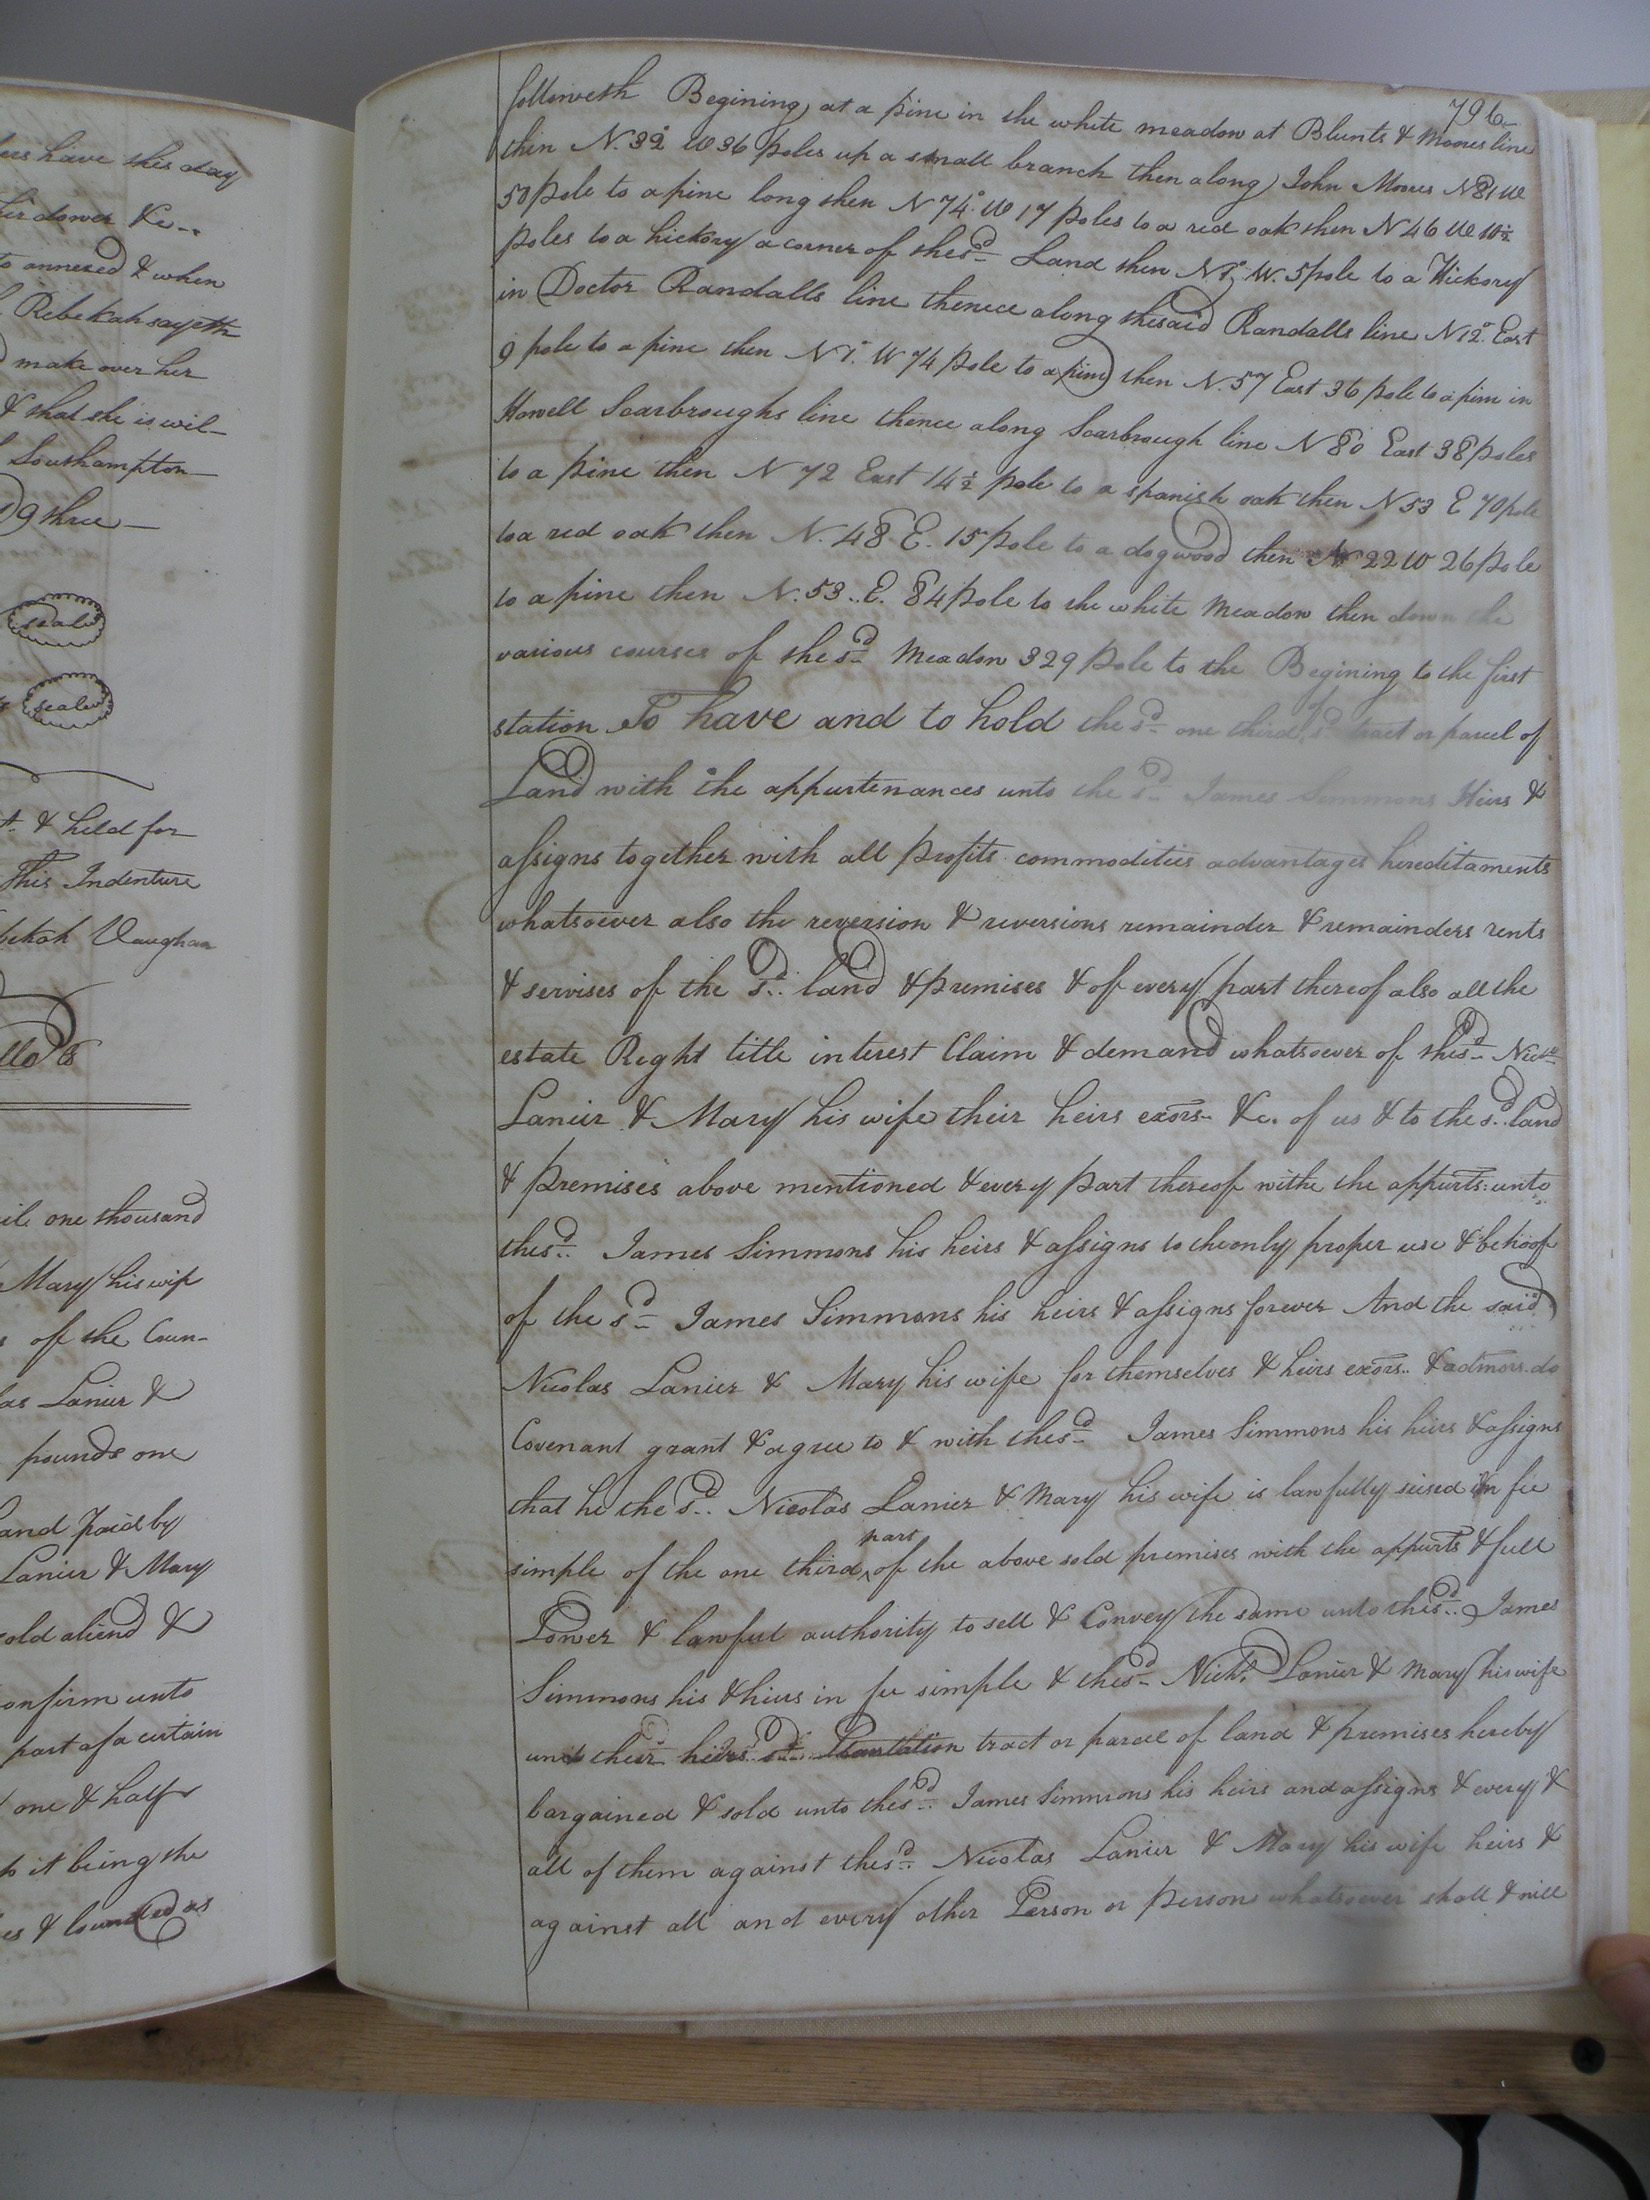 ers have this day
her dower &c..
to annexed & when
Rebekah sayeth
make over her
& that she is wil-
Southampton
9 three
seal
seal
& held for
This Indenture
bekah Vaughan
one thousand
Mary his wife
of the Coun-
as Lanier &
pounds one
and paid by
Lanier & Mary
old aliend &
onfirm unto
part of a certain
one & half
it being the
es & bounded as
796
followeth Begining at a pine in the white meadow at Blunts & Moores line
then N. 32° W 36 poles up a small branch then along John Moores N 81 W
50 pole to a pine long then N 74° W 17 poles to a red oak then N 46 W 10½
poles to a hickory a corner of the sd. Land then N 7° W. 5 pole to a Hickory
in Doctor Randalls line thence along the said Randalls line N 12° East
9 pole to a pine then N 7° W 74 pole to a pine then N. 57 East 36 pole to a pine in
Howell Scarbroughs line thence along Scarbrough line N 80 East 38 poles
to a pine then N 72 East 14½ pole to a spanish oak then N 53 E 70 pole
to a red oak then N. 48 E. 15 pole to a dogwood then N 22 W 26 pole
to a pine then N. 53.. E. 84 pole to the white Meadow then down the
various courses of the sd. Meadow 329 pole to the Begining to the first
station To have and to hold the sd. one third of sd. tract or parcel of
Land with the appurtenances unto the sd. James Simmons Heirs &
assigns together with all profits commodities advantages hereditaments
whatsoever also the reversion & reversions remainder & remainders rents
& servises of the sd.. land & premises & of every part thereof also all the
estate Right title interest Claim & demand whatsoever of the sd. Nicls
Lanier & Mary his wife their heirs exors. &c. of us & to the sd. land
& premises above mentioned & every part thereof withe the appurts: unto
the sd.. James Simmons his heirs & assigns to the only proper use & behoof
of the sd. James Simmons his heirs & assigns forever And the said
Nicolas Lanier & Mary his wife for themselves & heirs exors.. & admors. do
Covenant grant & agree to & with the sd. James Simmons his heirs & assigns
that he the sd.. Nicolas Lanier & Mary his wife is lawfully seised in fee
simple of the one third part of the above sold premises with the appurts & full
Power & lawful authority to sell & Convey the same unto the sd.. James
Simmons his & hiers in fee simple & the sd. Nichs. Lanier & Mary his wife
their heirs sd. Plantation tract or parcel of land & premises hereby
bargained & sold unto the sd.. James Simmons his heirs and assigns & every &
all of them against the sd. Nicolas Lanier & Mary his wife heirs &
against all and every other Person or persons whatsoever shall & will